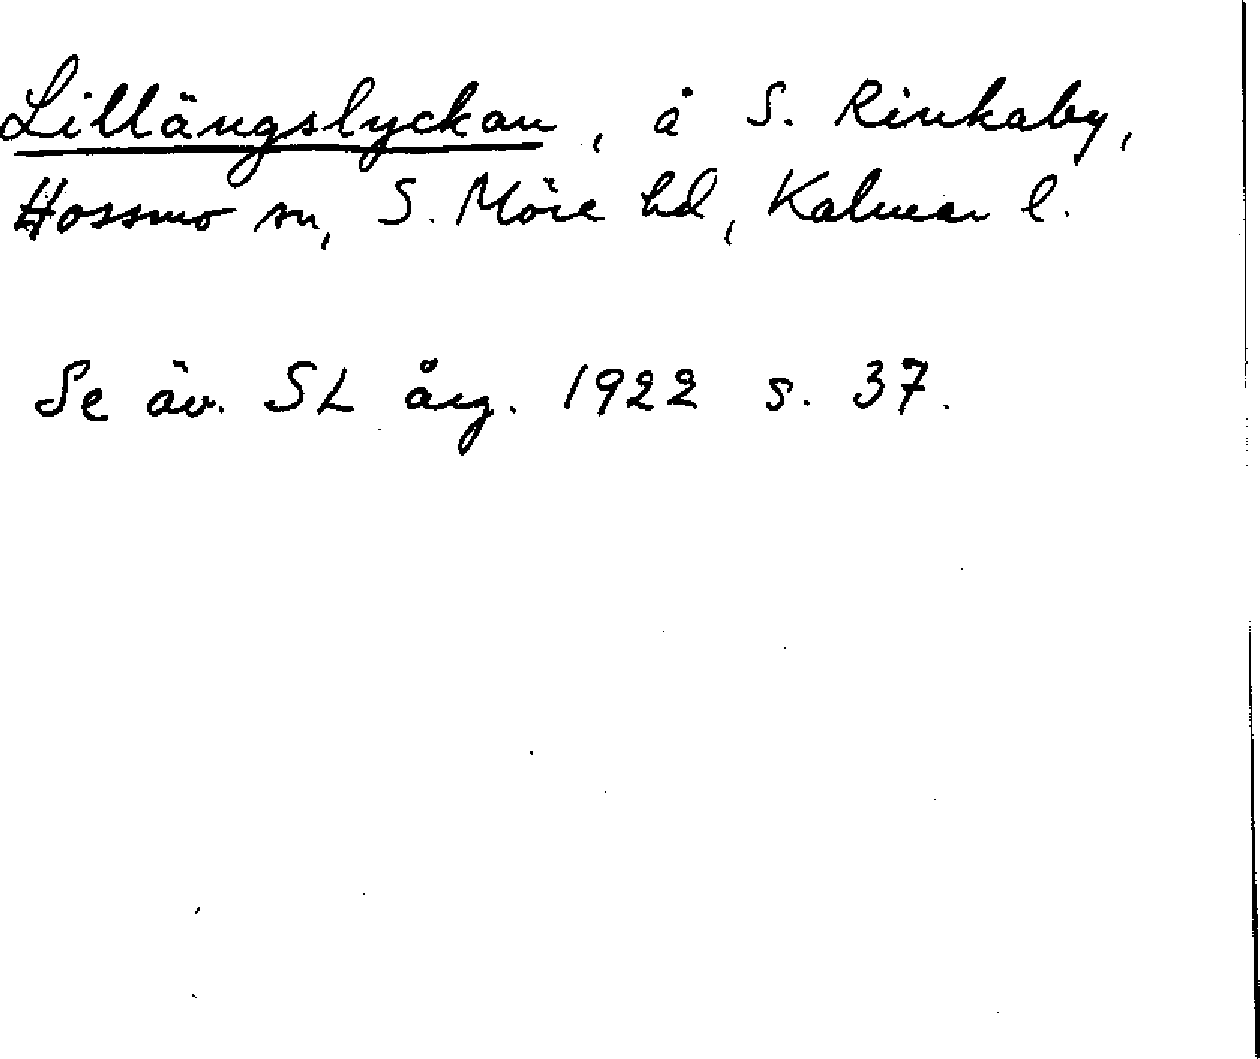 Lillängslyckan, å S. Rinkaby,
Hossmo sn, S. Möre hd, Kalmar l.
Se äv. SL årg. 1922 s. 37.